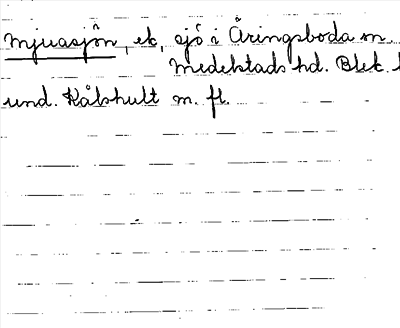 Mjuasjön, ek, sjö i Åringsboda sn.
Medelstads hd. Blek.
und. Kålshult m. fl.